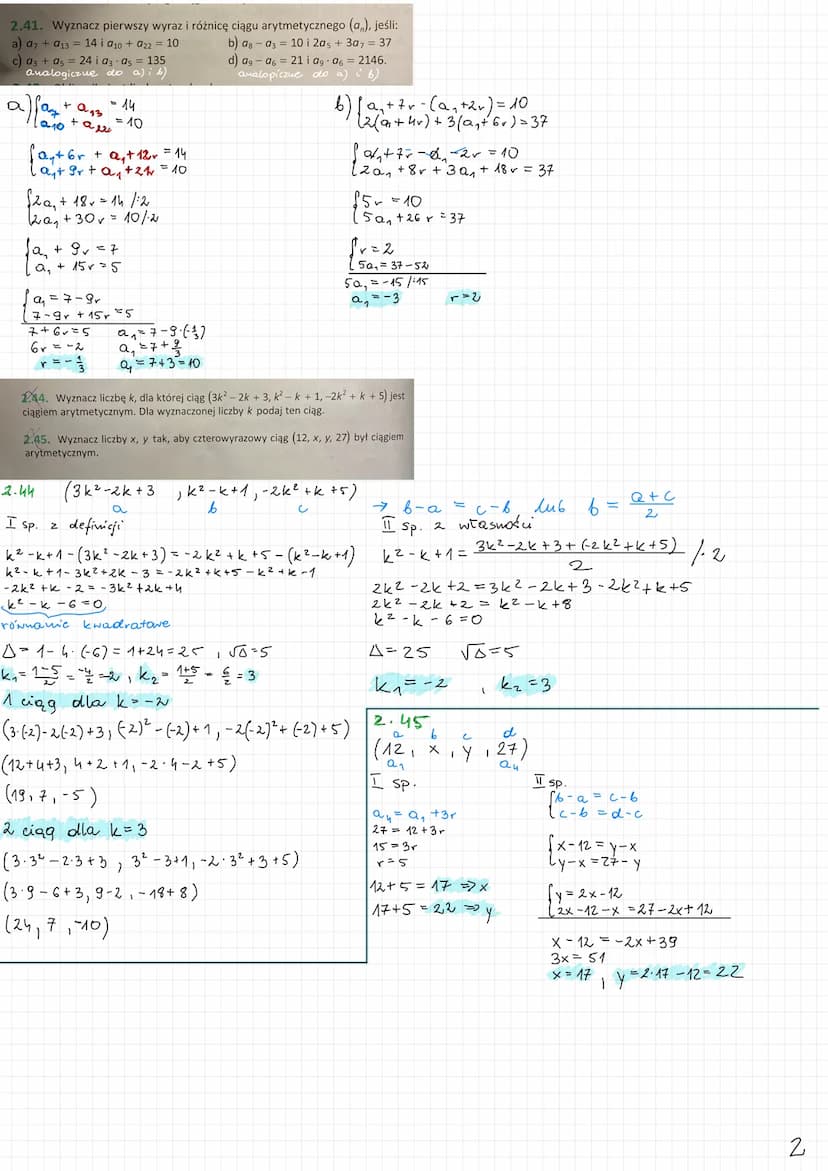 2.41. Wyznacz pierwszy wyraz i różnicę ciągu arytmetycznego (aₙ), jeśli:
a) a₇ + a₁₃ = 14 i a₁₀ + a₂₂ = 10
b) a₈ − a₃ = 10 i 2a₅ + 3a₇ = 37
c) a₃ + a₅ = 24 i a₃ · a₅ = 135
d) a₉ − a₆ = 21 i a₉ · a₆ = 2146.
analogiczne do a) i b)
analogiczne do a) i b)
a) { a₇ + a₁₃ = 14
a₁₀ + a₂₂ = 10
{ a₁+6r + a₁+12r = 14
a₁+9r + a₁+21r = 10
{ 2a₁ + 18r = 14 /:2
2a₁ + 30r = 10 /:2
{ a₁ + 9r = 7
a₁ + 15r = 5
{ a₁ = 7-9r
7-9r + 15r = 5
7+6r=5
6r = -2
r = -1/3
a₁ = 7-9·(-1/3)
a₁ = 7+9/3
a₁ = 7+3=10
b) { a₁+7r-(a₁+2r)=10
2(a₁+4r)+3(a₁+6r)=37
{ a₁+7r-a₁-2r = 10
2a₁+8r+3a₁+18r = 37
{ 5r = 10
5a₁+26r=37
{ r=2
5a₁=37-52
5a₁=-15 /:15
a₁=-3 r=2
2.44. Wyznacz liczbę k, dla której ciąg (3k² − 2k + 3, k² − k + 1, −2k² + k + 5) jest
ciągiem arytmetycznym. Dla wyznaczonej liczby k podaj ten ciąg.
2.45. Wyznacz liczby x, y tak, aby czterowyrazowy ciąg (12, x, y, 27) był ciągiem
arytmetycznym.
2.44 (3k²-2k+3 , k²-k+1 , -2k²+k+5)
a b c
→ b-a = c-b lub b = (a+c)/2
I sp. z definicji
k²-k+1-(3k²-2k+3) = -2k²+k+5-(k²-k+1)
k²-k+1-3k²+2k-3 = -2k²+k+5-k²+k-1
-2k²+k-2 = -3k²+2k+4
k²-k-6=0
równanie kwadratowe
Δ = 1-4·(-6) = 1+24=25 , √Δ=5
k₁ = (1-5)/2 = -4/2 = -2 , k₂ = (1+5)/2 = 6/2 = 3
1 ciąg dla k=-2
(3·(-2)-2(-2)+3, (-2)²-(-2)+1, -2(-2)²+(-2)+5)
(12+4+3, 4+2+1, -2·4-2+5)
(19, 7, -5)
2 ciąg dla k=3
(3·3²-2·3+3 , 3²-3+1, -2·3²+3+5)
(3·9-6+3, 9-2, -18+8)
(24, 7, -10)
II sp. z własności
k²-k+1 = (3k²-2k+3+(-2k²+k+5))/2 /·2
2k²-2k+2 = 3k²-2k+3-2k²+k+5
2k²-2k+2 = k²-k+8
k²-k-6=0
Δ=25 √Δ=5
k₁=-2 , k₂=3
2.45
a b c d
(12, x, y, 27)
a₁ a₄
I sp.
a₄ = a₁+3r
27 = 12+3r
15=3r
r=5
12+5 = 17 => x
17+5 = 22 => y
II sp.
{ b-a = c-b
c-b = d-c
{ x-12 = y-x
y-x = 27-y
{ y = 2x-12
2x-12-x = 27-2x+12
x-12 = -2x+39
3x = 51
x=17 , y=2·17-12=22
2